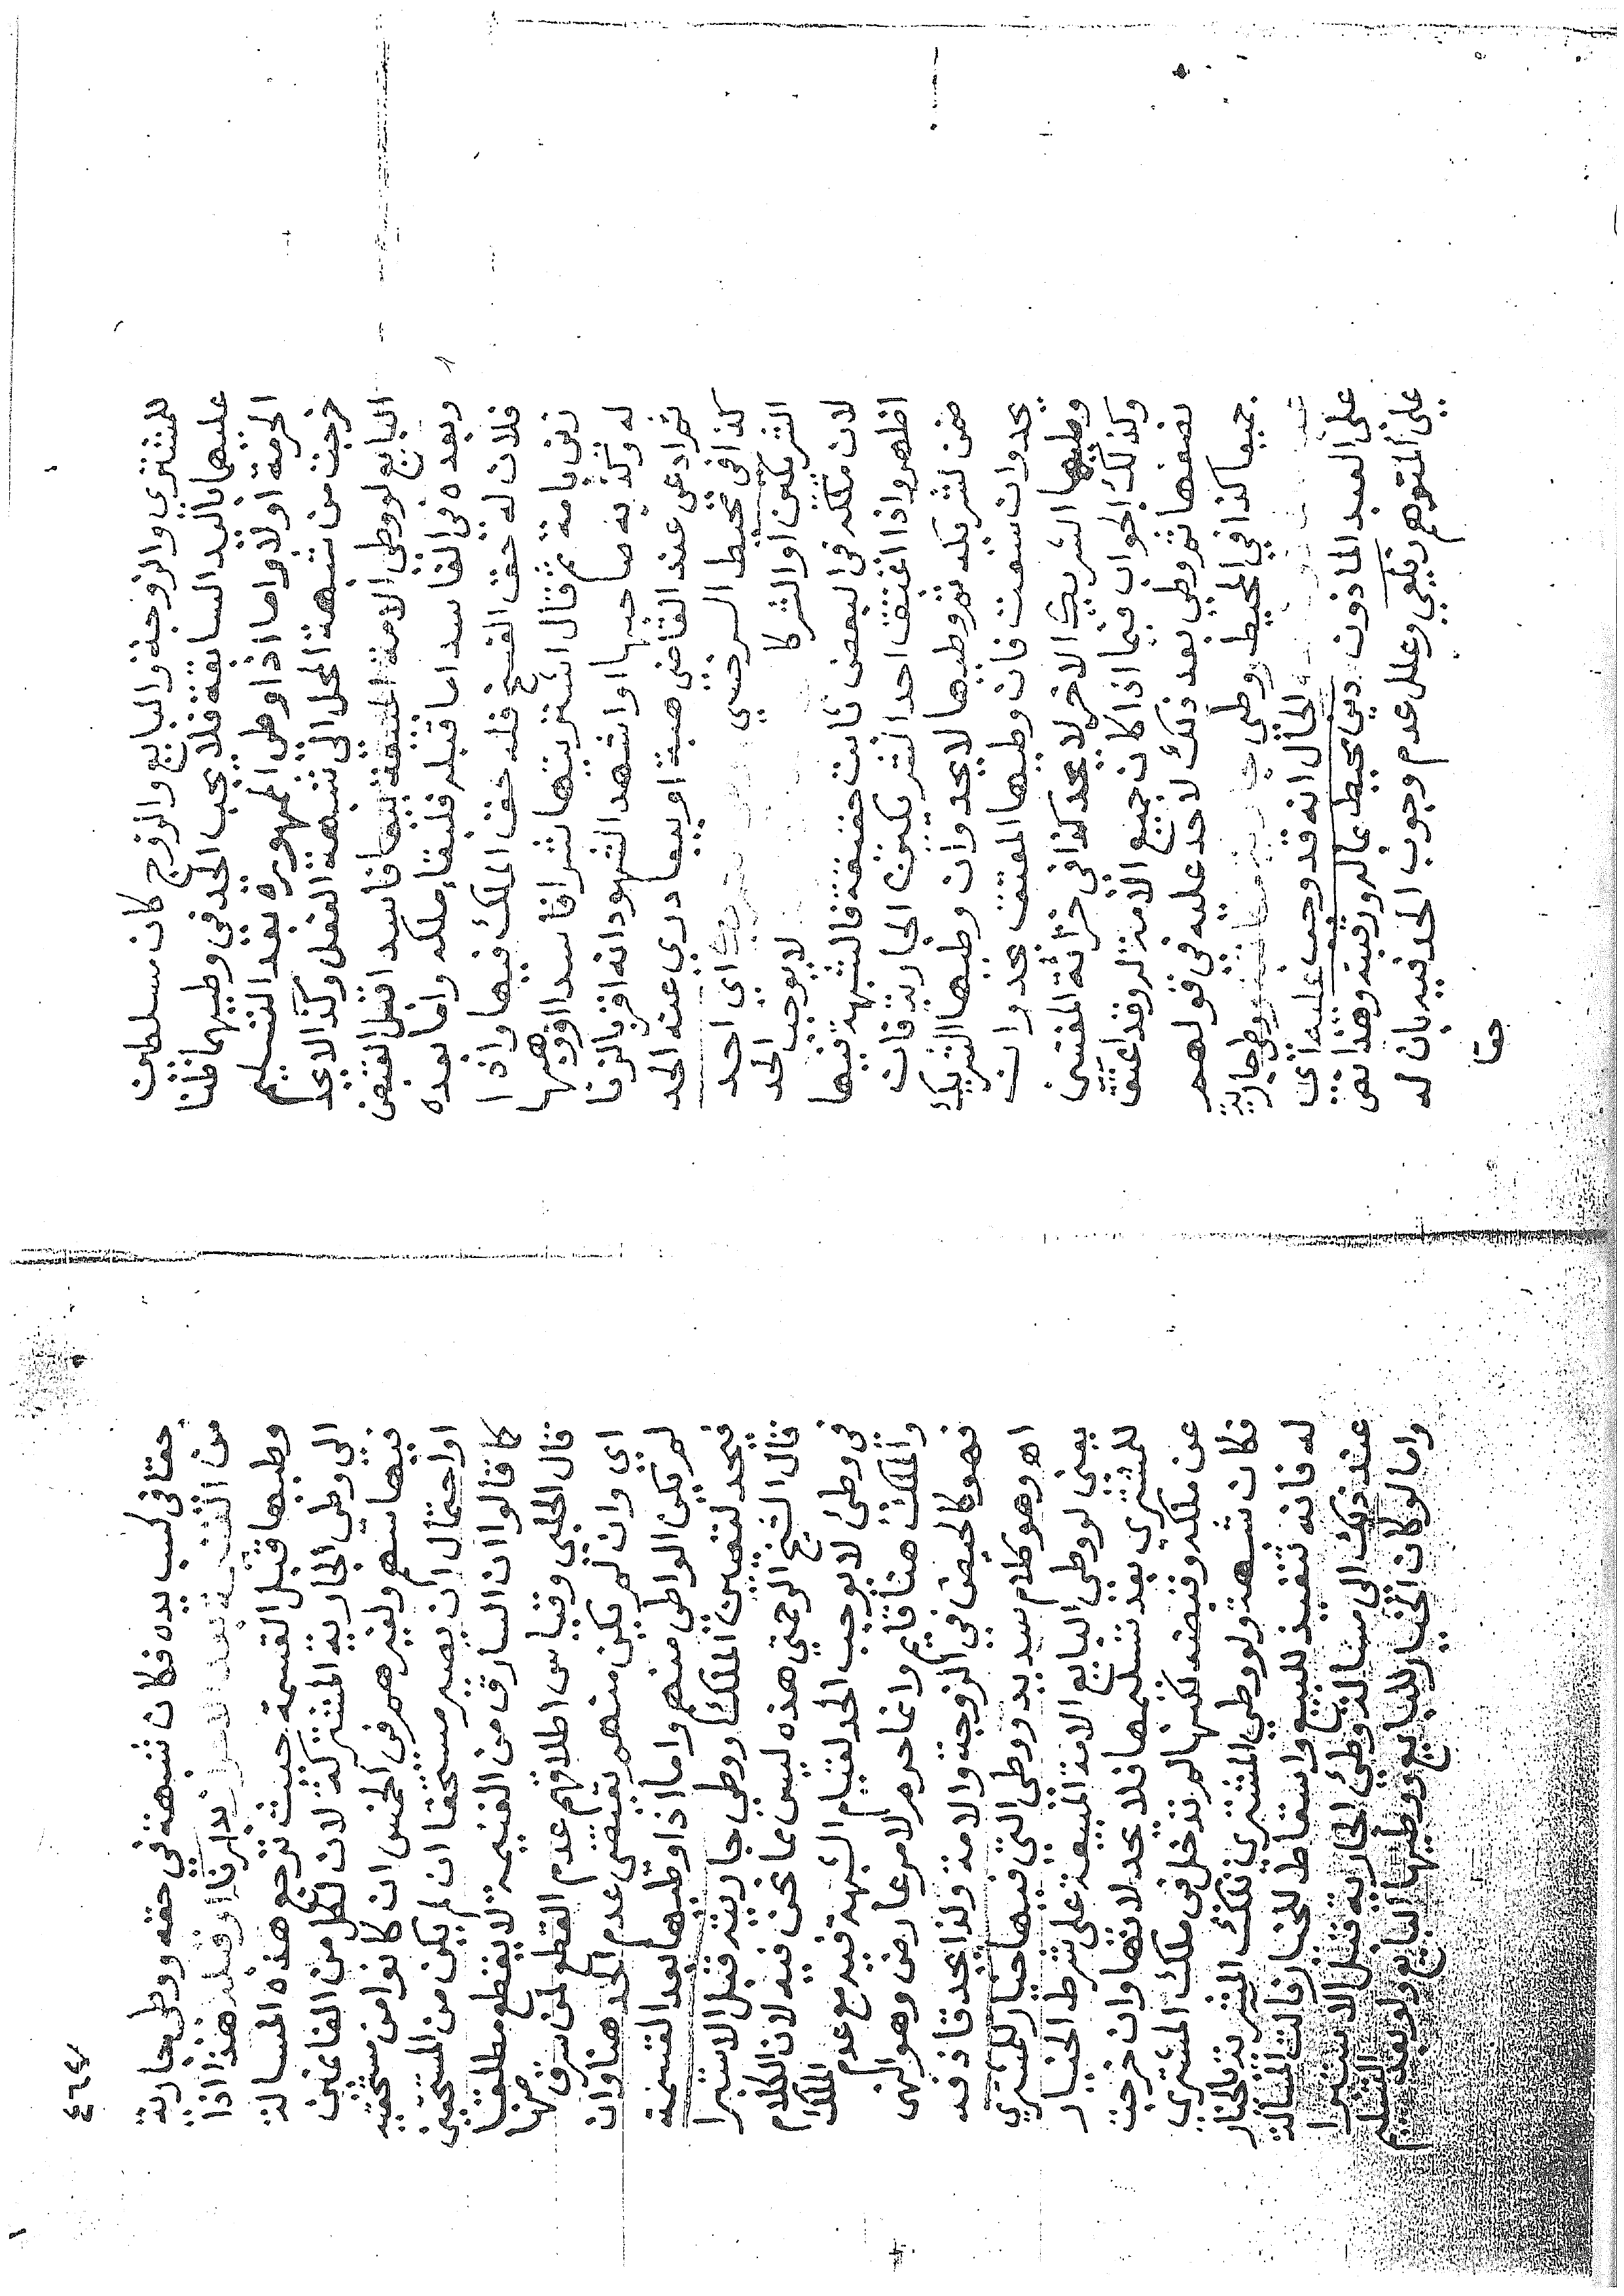 للمشتري والزوجة والبايع والزوج كان سلطين
عليها باليد السابقة فلا يجب الحد في وطيهما ظنا
الحرمة اولا واما اذا وطي الممهورة بعد التسليم
خرجت من شبهة المحل الى شبهة الفعل وكذا لا يحد
البايع لو وطي الامة المبيعة بيعا فاسدا قبل القبض
وبعده في الفاسد اما قبله فلبقاء ملكه واما بعده
فلان له حق الفسخ فله حق الملك فيها واذا
زنى بامة ثم قال اشتريتها شرا فاسدا او وهبها
له وكذبه صاحبها او اشهد الشهود انه اقر بالزنا
ثم ادعى عند القاضي هبة او بيعا دري عنه الحد
كذا في محيط السرخسي اي احد
الشريكين او الشركا لا يوجب الحد
لان ملكه في البعض ثابت حقيقة فالشبهة فيها
اظهر واذا اعتق احد الشريكين الجارية فان
ضمن لشريكه ثم وطيها لا يحد وان وطيها الشريك
يحد وان سعت فان وطيها المعتق يحد وان
وطيها الشريك الاخر لا يحد كذا في خزانة المفتين
وكذلك الجواب فيما اذا كان جميع الامة له وقد اعتق
نصفها ثم وطي بعد ذلك لا حد عليه في قولهم
جميعا كذا في المحيط وطي جارية
الحال انه قد وجب عليه اي
على العبد الماذون دين محيط بماله ورقبته وهذا نص
على المتوهم زيلعي وعلل عدم وجوب الحد فيه بان له
حقا
٤٦٤
حقا في كسب يده فكان شبهة في حقه ووطي جارية
من الغنيمة بعد الاحراز بدارنا او قبله هذا اذا
وطيها قبل القسمة حيث ترجع هذه المسالة
الى وطي الجارية المشتركة لان لكل من الغانمين
فيها سهم ولغيرهم في الخمس ان كانوا من مستحقيه
او احتمال ان يصير مستحقا ان لم يكن من المستحقين
كما قالوا ان السارق من الغنيمة لا يقطع مطلقا
قال الحلبي وقياس اطلاقهم عدم القطع لمن سرق منها
اي وان لم يكن منهم يقتضي عدم الحد هنا وان
لم يكن الواطي منهم واما اذا وطيها بعد القسمة
فيحد لتعين الملك ووطي جاريته قبل الاستبرا
قال الشيخ الرحمتي هذه ليس مما نحن فيه لان الكلام
في وطئ لا يوجب الحد لقيام الشبهة فيه مع عدم الملك
والملك هنا قايم وانما حرم لامر عارض وهو النهي
فهو كالحيض في الزوجة والامة ولذا يحد قاذفه
اه وهو كلام سديد ووطي التي فيها خيار للمشتري
يعني لو وطي البايع الامة المبيعة على شرط الخيار
للمشتري بعد تسليمها فلا يحد لانها وان خرجت
عن ملكه وقبضه لكنها لم تدخل في ملك المشتري
فكان شبهة ولو وطي المشتري تلك المشرية بالخيار
له فانه تنفيذ للبيع واسقاط للخيار فالت المسالة
عند ذلك الى مسالة وطئ الجارية قبل الاستبرا
واما لو كان الخيار للبايع ووطيها البايع ولو بعد التسليم